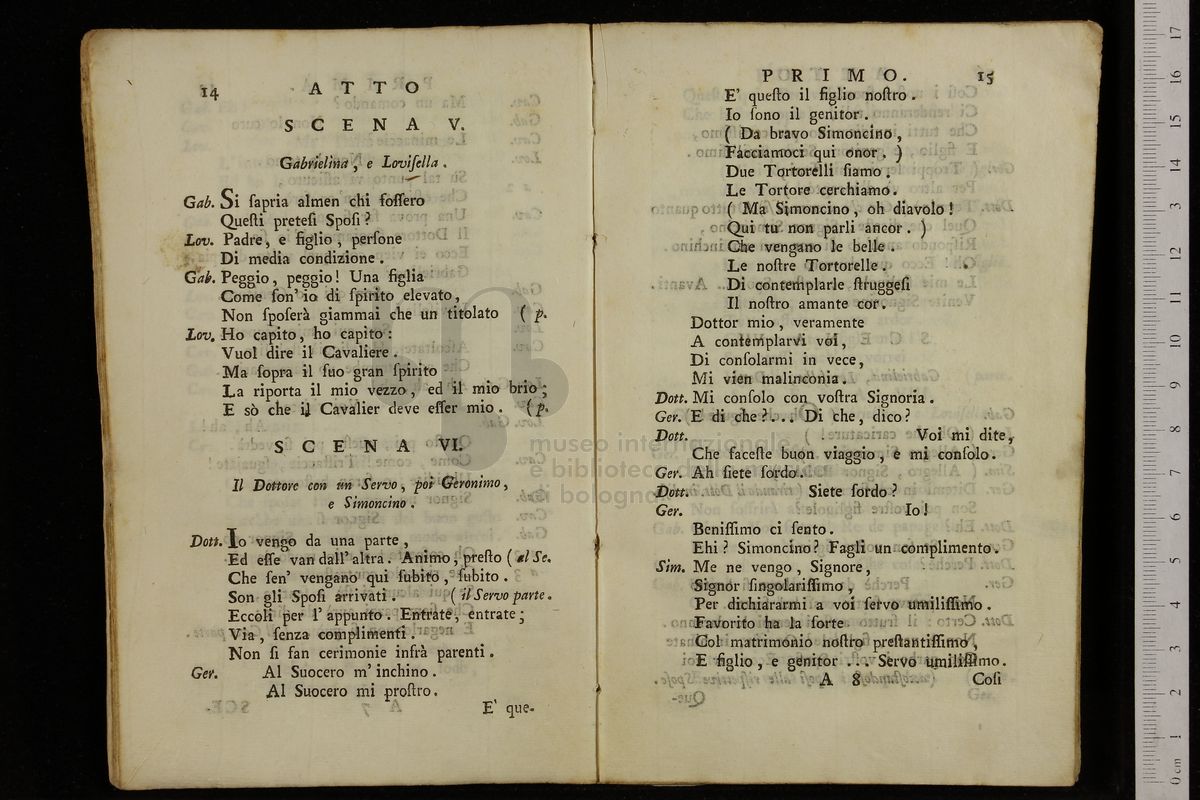 14 ATTO
SCENA V.
Gabrielina, e Loviſella.
Gab. Si ſapria almen chi foſſero
Queſti preteſi Spoſi?
Lov. Padre, e figlio, perſone
Di media condizione.
Gab. Peggio, peggio! Una figlia
Come ſon' io di ſpirito elevato,
Non ſpoſerà giammai che un titolato ( p.
Lov. Ho capito, ho capito:
Vuol dire il Cavaliere.
Ma ſopra il ſuo gran ſpirito
La riporta il mio vezzo, ed il mio brio;
E sò che il Cavalier deve eſſer mio. (p.
SCENA VI.
Il Dottore con un Servo, poi Geronimo,
e Simoncino.
Dott. Io vengo da una parte,
Ed eſſe van dall' altra. Animo, preſto ( al Se.
Che ſen' vengano qui ſubito, ſubito.
Son gli Spoſi arrivati. ( il Servo parte.
Eccoli per l' appunto. Entrate, entrate;
Via, ſenza complimenti.
Non ſi fan cerimonie infrà parenti.
Ger. Al Suocero m' inchino.
Al Suocero mi proſtro.
E' que-
PRIMO. 15
E' queſto il figlio noſtro.
Io ſono il genitor.
( Da bravo Simoncino,
Facciamoci qui onor. )
Due Tortorelli ſiamo.
Le Tortore cerchiamo.
( Ma Simoncino, oh diavolo!
Qui tu non parli ancor. )
Che vengano le belle.
Le noſtre Tortorelle.
Di contemplarle ſtruggeſi
Il noſtro amante cor.
Dottor mio, veramente
A contemplarvi voi,
Di conſolarmi in vece,
Mi vien malinconia.
Dott. Mi conſolo con voſtra Signoria.
Ger. E di che?... Di che, dico?
Dott. Voi mi dite,
Che faceſte buon viaggio, e mi conſolo.
Ger. Ah ſiete ſordo.
Dott. Siete ſordo?
Ger. Io!
Beniſſimo ci ſento.
Ehi? Simoncino? Fagli un complimento.
Sim. Me ne vengo, Signore,
Signor ſingolariſſimo,
Per dichiararmi a voi ſervo umiliſſimo.
Favorito ha la ſorte
Col matrimonio noſtro preſtantiſſimo,
E figlio, e genitor ... Servo umiliſſimo.
A 8 Coſi
museo internazionale
e biblioteca
di bologna